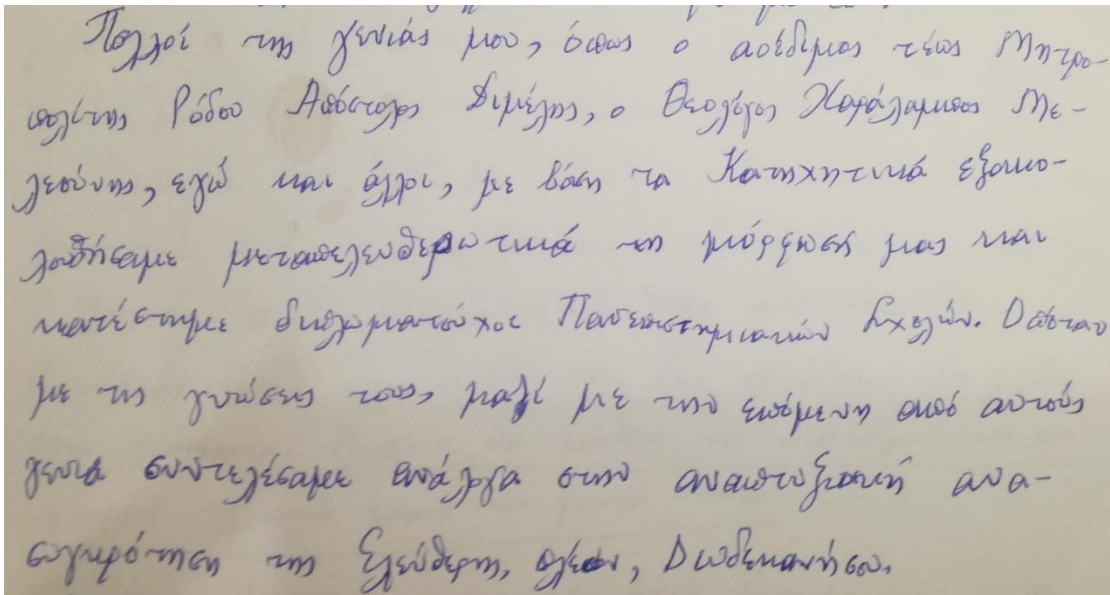 Πολλοί της γενιάς μου, όπως ο αοίδιμος τέως Μητρο-
πολίτης Ρόδου Απόστολος Διμέλης, ο Θεολόγος Χαράλαμπος Με-
λεούνης, εγώ και άλλοι, με βάση τα Κατηχητικά εξακο-
λουθήσαμε μεταπελευθερωτικά τη μόρφωσή μας και
καταστήμε διπλωματούχοι Πανεπιστημιακών Σχολών.
με τις γνώσεις τους, μαζί με την επόμενη από αυτούς
γενιά συντελέσαμε ανάλογα στην αναπτυξιακή ανα-
συγκρότηση της Ελεύθερης, πλέον, Δωδεκανήσου.